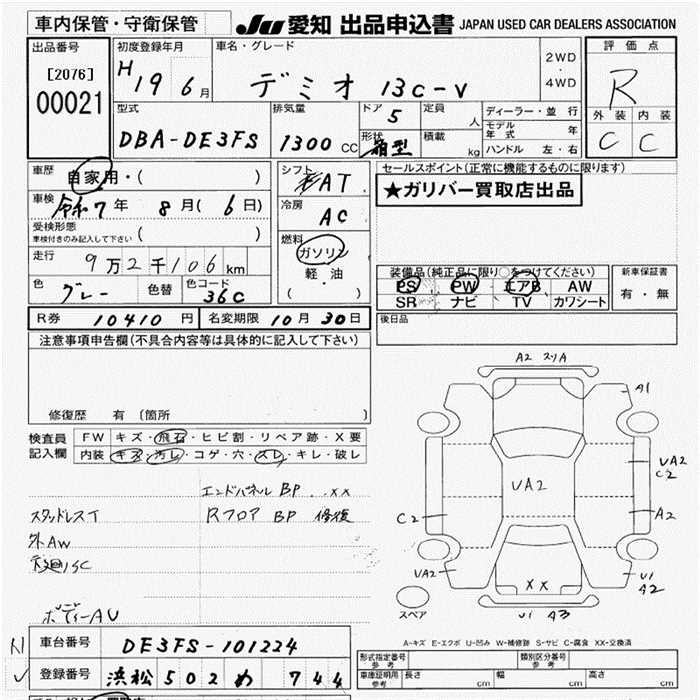 車内保管・守衛保管
JU 愛知 出品申込書 JAPAN USED CAR DEALERS ASSOCIATION
出品番号
[2076]
00021
初度登録年月
H 19 6月
車名・グレード
デミオ 13C-V
2WD
・
4WD
評価点
R
外装 内装
C C
型式
DBA-DE3FS
排気量
1300 CC
ドア
5
形状
箱型
定員
人
積載
kg
ディーラー・並行
モデル年式 年
ハンドル 左・右
車歴
自家用・( )
車検
令和7年 8月( 6日)
受検形態
車検付きのみ記入して下さい ( )
走行
9万2千106km
色
グレー
色替
色コード
36C
シフト
AT
冷房
AC
燃料
ガソリン
軽・油
( ・ )
セールスポイント(正常に機能するものに限ります)
★ガリバー買取店出品
装備品(純正品に限り○をつけてください)
PS PW エアB AW
SR ナビ TV カワシート
新車保証書
有・無
R券 10410円 名変期限 10月30日
後日品
注意事項申告欄(不具合内容等は具体的に記入して下さい)
修復歴 有 (箇所 )
検査員
記入欄
FW キズ・飛石・ヒビ割・リペア跡・X要
内装 キズ・汚レ・コゲ・穴・スレ・キレ・破レ
エンドパネル BP ‥ XX
スタッドレスT
Rフロア BP 修復
外AW
ボディーAU
A2 スリA
A1
UA2
C2
UA2
C2
A2
UA2
XX
U1
A2
U1 A3
スペア
A-キズ E-エクボ U-凹み W-補修跡 S-サビ C-腐食 XX-交換済
車台番号 DE3FS-101224
登録番号 浜松 502 め 744
形式指定番号
参考
類別区分番号
参考
車庫証明用
参考
長さ cm 幅 cm 高さ cm